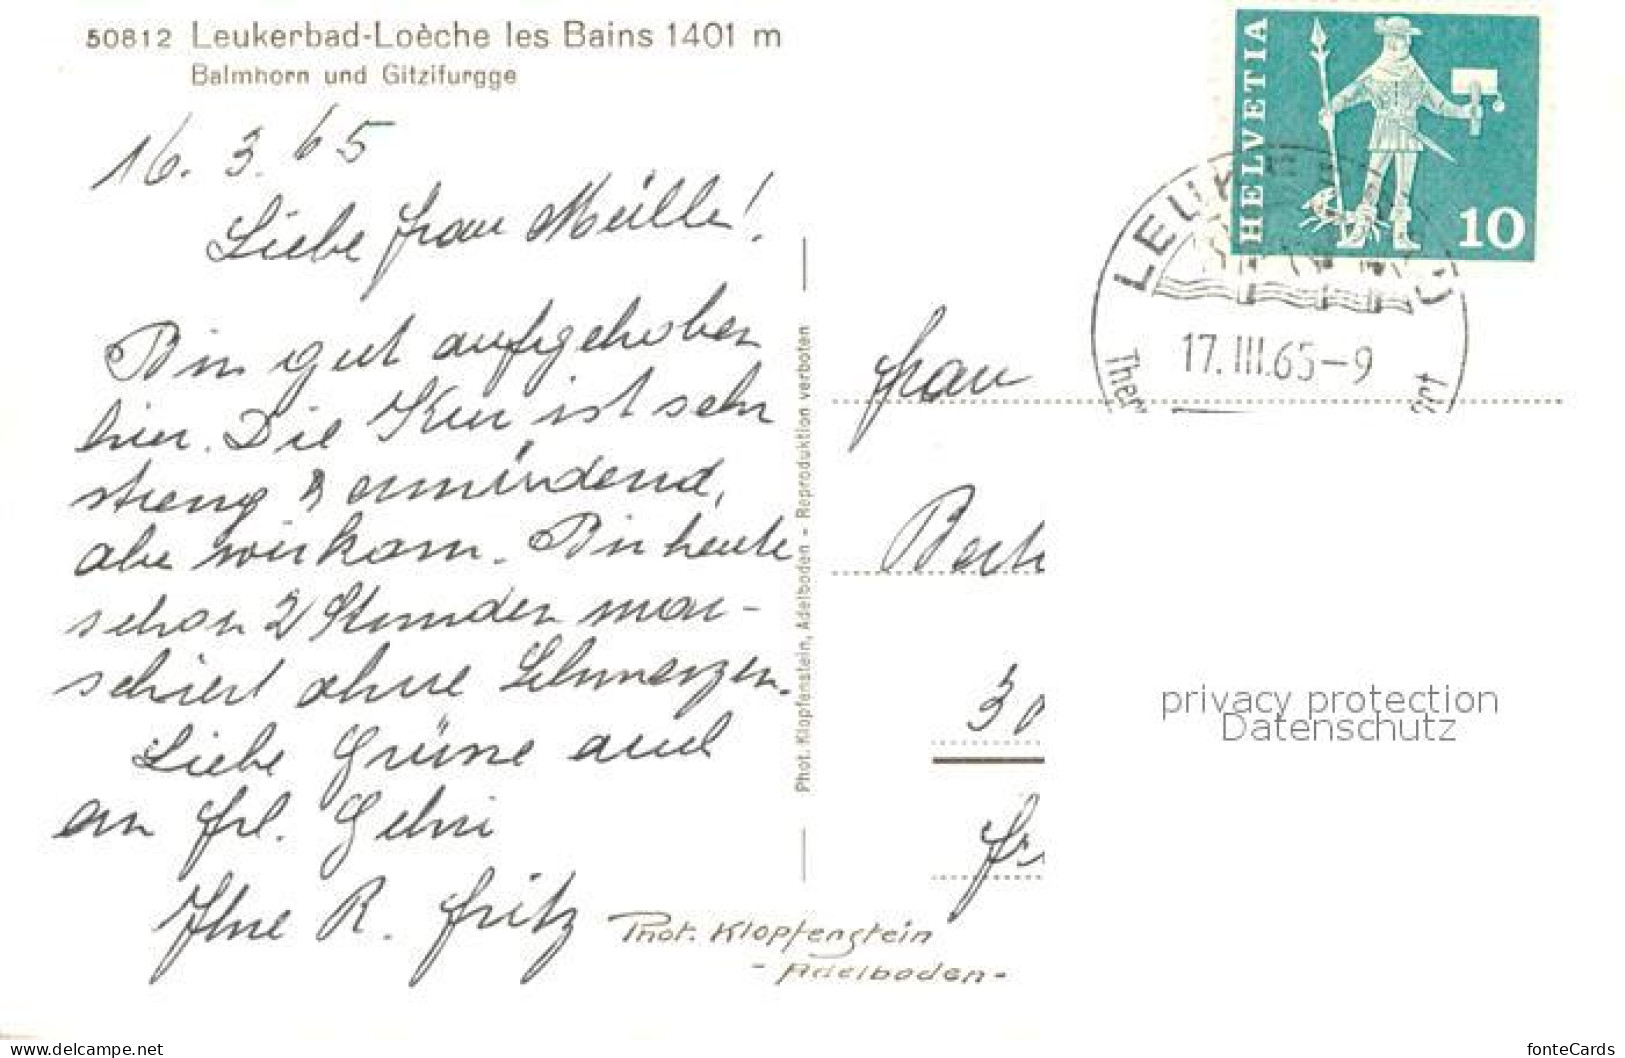 50812 Leukerbad-Loèche les Bains 1401 m
Balmhorn und Gitzifurgge
16. 3. 65
Liebe Frau Müller!
Bin gut aufgehoben
hier. Die Kur ist sehr
streng & ermüdend,
aber wirksam. Bin heute
schon 2 Stunden mar-
schiert ohne Schmerzen.
Liebe Grüsse auch
an Frl.
Ihre R. Fritz
Phot. Klopfenstein, Adelboden - Reproduktion verboten
Phot. Klopfenstein
- Adelboden -
HELVETIA
10
17.III.65-9
Frau
30
privacy protection
Datenschutz
www.delcampe.net
fonteCards